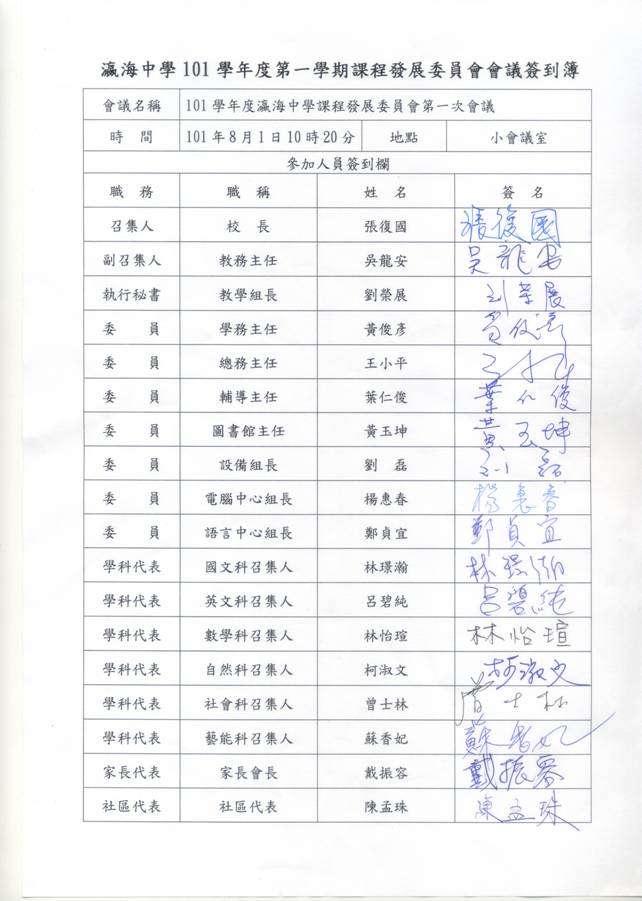 瀛海中學 101 學年度第一學期課程發展委員會會議簽到簿
會議名稱 101 學年度瀛海中學課程發展委員會第一次會議
時 間 101 年 8 月 1 日 10 時 20 分 地點 小會議室
參加人員簽到欄
職 務 職 稱 姓 名 簽 名
召集人 校 長 張復國 張復國
副召集人 教務主任 吳龍安 吳龍安
執行秘書 教學組長 劉榮展 刘榮展
委 員 學務主任 黃俊彥 黃俊彥
委 員 總務主任 王小平
委 員 輔導主任 葉仁俊 葉仁俊
委 員 圖書館主任 黃玉坤 黃玉坤
委 員 設備組長 劉 磊 刘磊
委 員 電腦中心組長 楊惠春 楊惠春
委 員 語言中心組長 鄭貞宜 鄭貞宜
學科代表 國文科召集人 林璟瀚 林璟瀚
學科代表 英文科召集人 呂碧純 呂碧純
學科代表 數學科召集人 林怡瑄 林怡瑄
學科代表 自然科召集人 柯淑文 柯淑文
學科代表 社會科召集人 曾士林 曾士林
學科代表 藝能科召集人 蘇香妃 蘇香妃
家長代表 家長會長 戴振容 戴振容
社區代表 社區代表 陳孟珠 陳孟珠